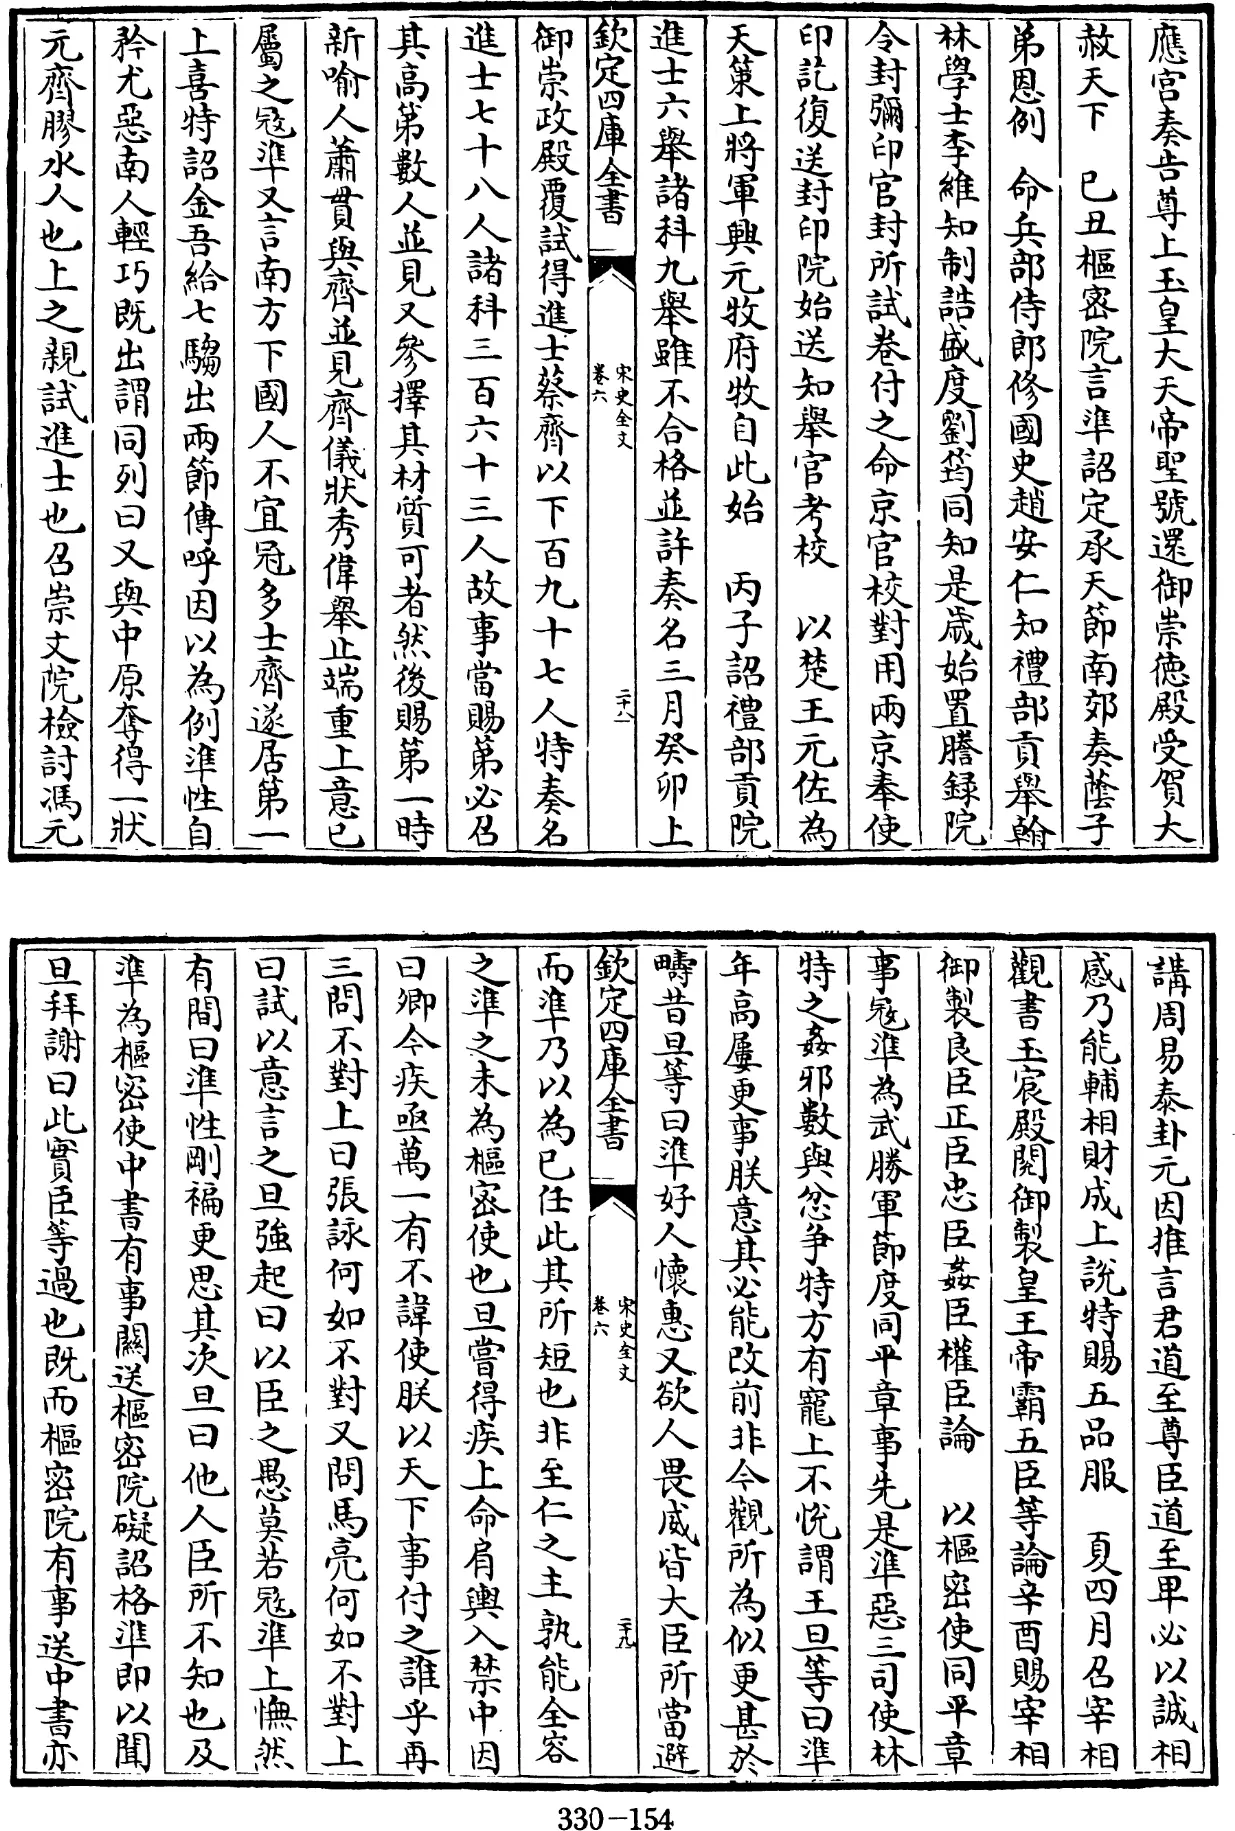 應宫奏告尊上玉皇大天帝聖號還御崇徳殿受賀大
赦天下　己丑樞密院言準詔定承天節南郊奏蔭子
弟恩例　命兵部侍郎修國史趙安仁知禮部貢舉翰
林學士李維知制誥盛度劉筠同知是歳始置謄録院
令封彌印官封所試卷付之命京官校對用兩京奉使
印訖復送封印院始送知舉官考校　以楚王元佐為
天策上將軍興元牧府牧自此始　丙子詔禮部貢院
進士六舉諸科九舉雖不合格並許奏名三月癸卯上
欽定四庫全書
宋史全文
卷六
二十八
御崇政殿覆試得進士蔡齊以下百九十七人特奏名
進士七十八人諸科三百六十三人故事當賜第必召
其高第數人並見又參擇其材質可者然後賜第一時
新喻人蕭貫與齊並見齊儀狀秀偉舉止端重上意已
屬之寇準又言南方下國人不宜冠多士齊遂居第一
上喜特詔金吾給七騶出兩節傳呼因以為例準性自
矜尤惡南人輕巧既出謂同列曰又與中原奪得一狀
元齊膠水人也上之親試進士也召崇文院檢討馮元
講周易泰卦元因推言君道至尊臣道至卑必以誠相
感乃能輔相財成上說特賜五品服　夏四月召宰相
觀書玉宸殿閱御製皇王帝霸五臣等論辛酉賜宰相
御製良臣正臣忠臣姦臣權臣論　以樞密使同平章
事寇準為武勝軍節度同平章事先是準惡三司使林
特之姦邪數與忿争特方有寵上不悅謂王旦等曰準
年高屢更事朕意其必能改前非今觀所為似更甚於
疇昔旦等曰準好人懷惠又欲人畏威皆大臣所當避
欽定四庫全書
宋史全文
卷六
二十九
而準乃以為已任此其所短也非至仁之主孰能全容
之準之未為樞密使也旦嘗得疾上命肩輿入禁中因
曰卿今疾亟萬一有不諱使朕以天下事付之誰乎再
三問不對上曰張詠何如不對又問馬亮何如不對上
曰試以意言之旦強起曰以臣之愚莫若寇準上憮然
有間曰準性剛褊更思其次旦曰他人臣所不知也及
準為樞密使中書有事闗送樞密院礙詔格準即以聞
旦拜謝曰此實臣等過也既而樞密院有事送中書亦
330-154